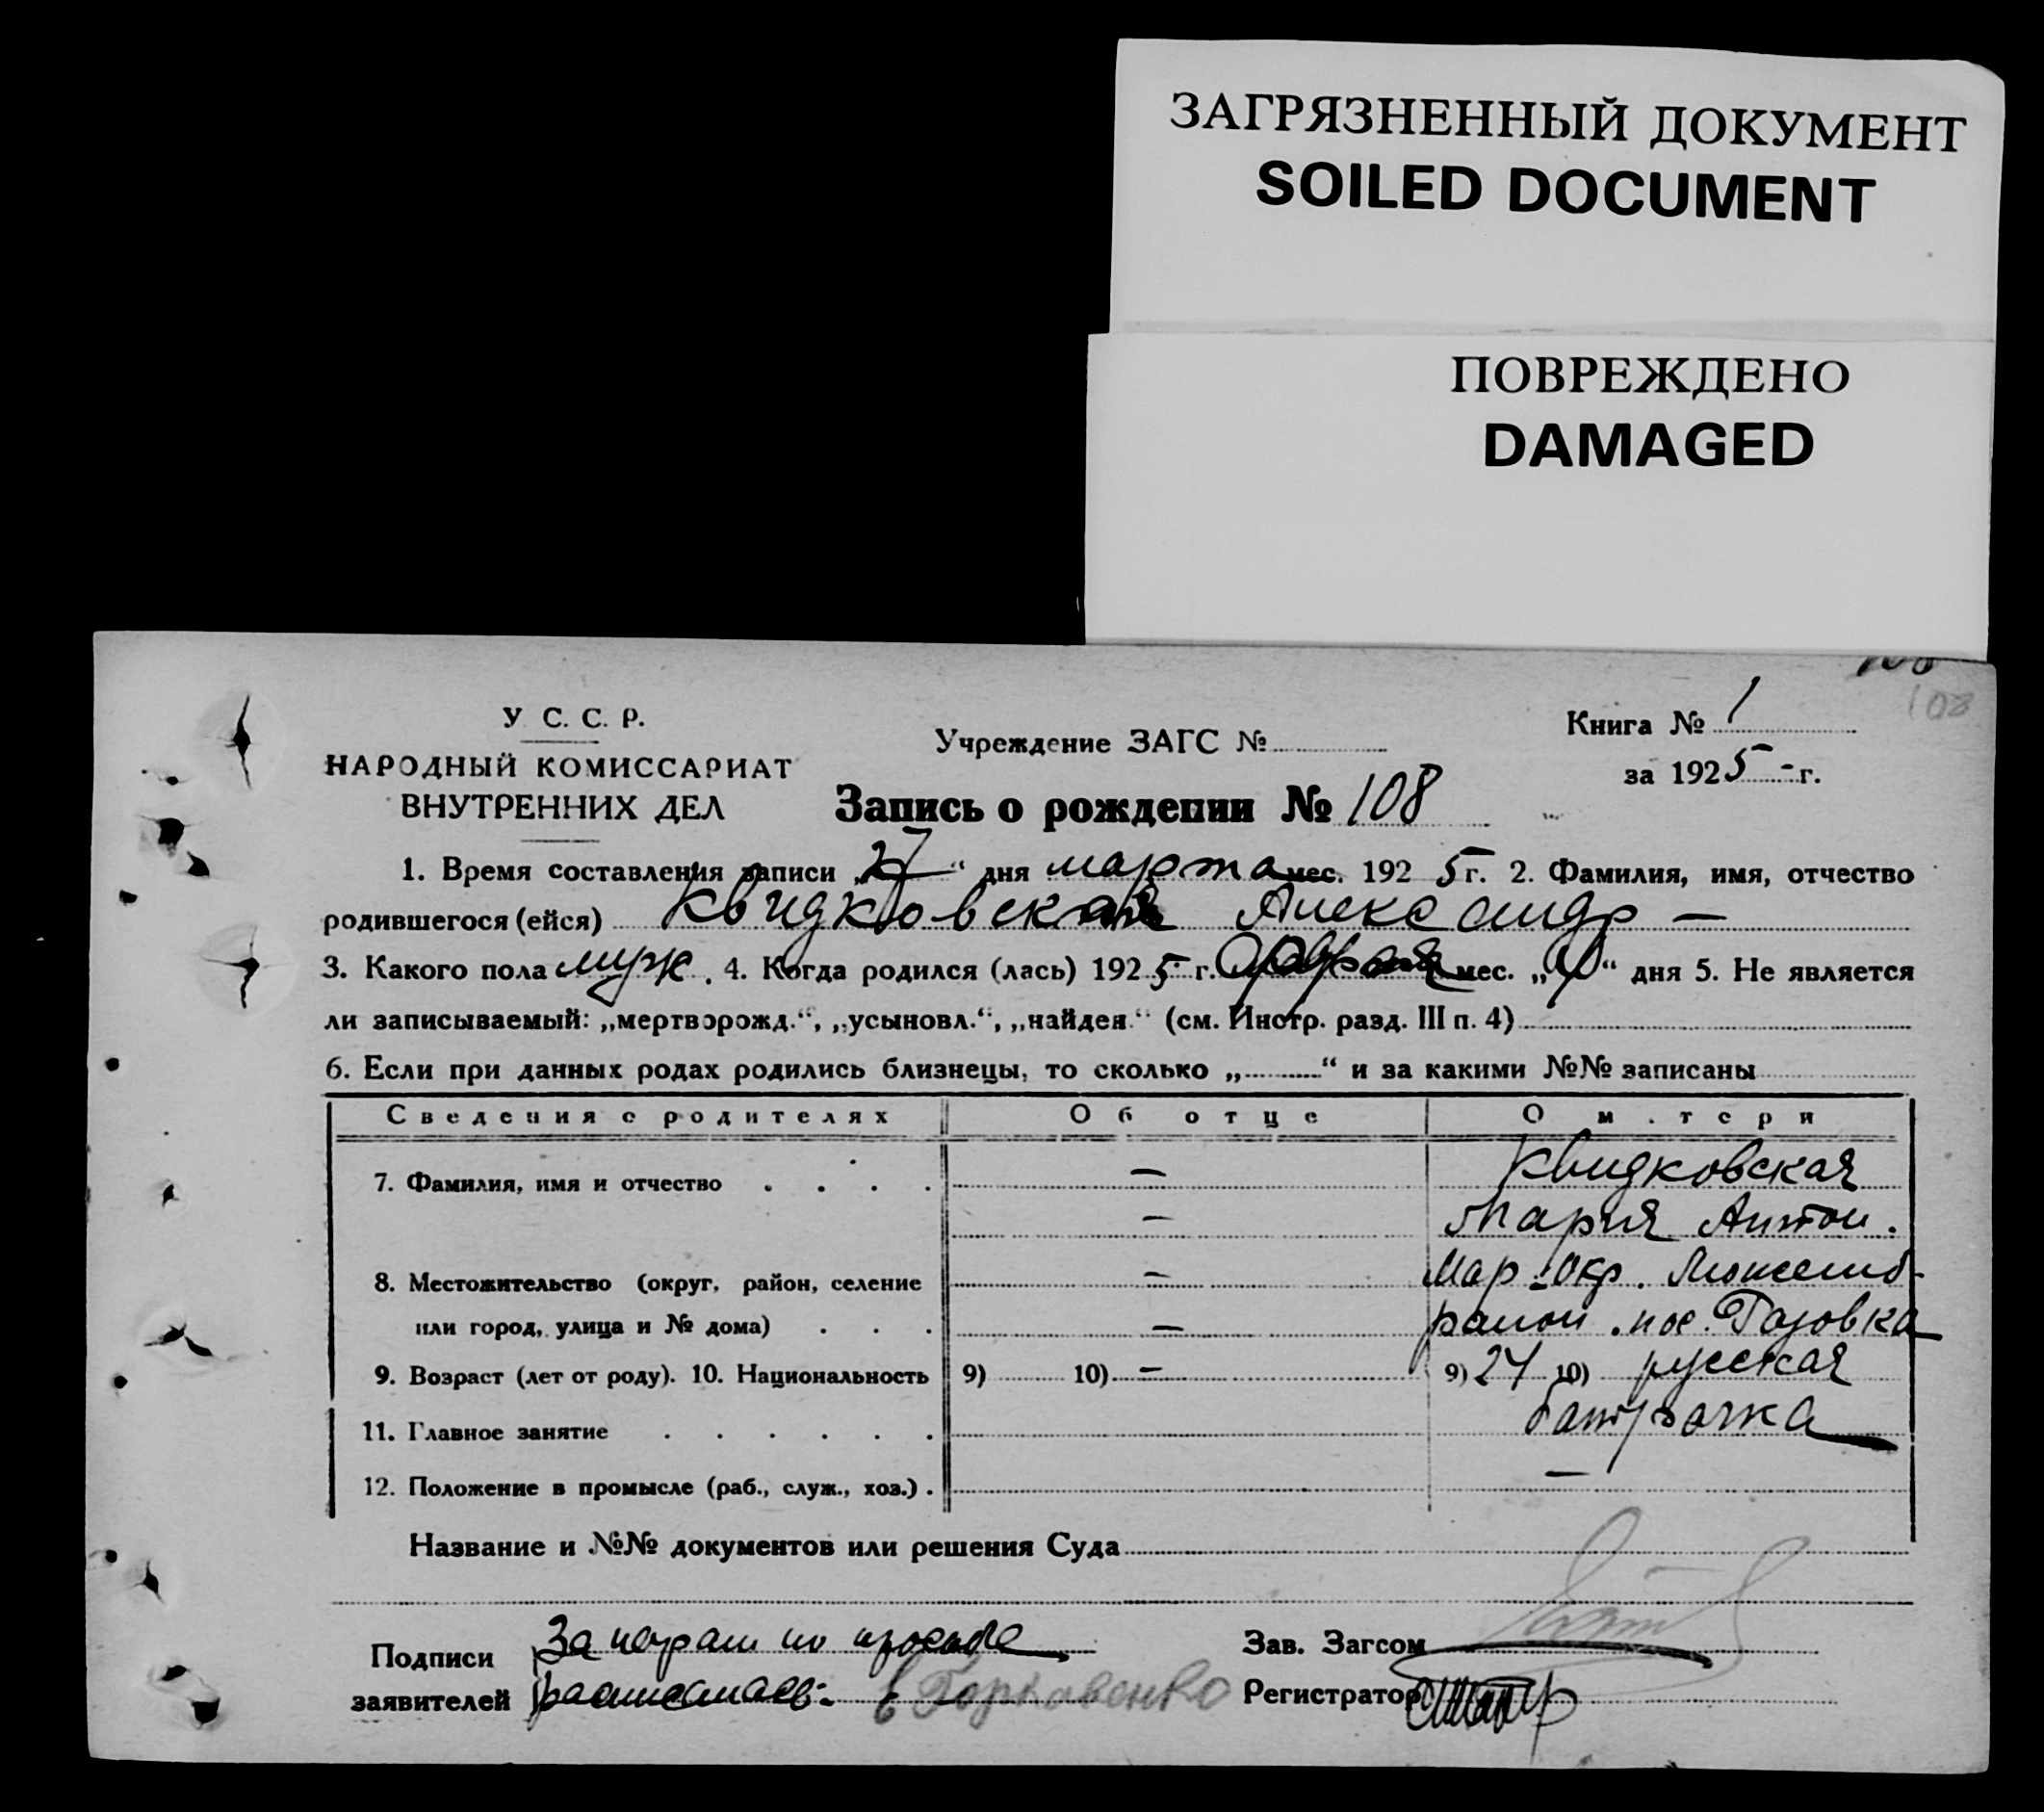 ЗАГРЯЗНЕННЫЙ ДОКУМЕНТ
SOILED DOCUMENT
ПОВРЕЖДЕНО
DAMAGED
108
У С. С. Р.
НАРОДНЫЙ КОМИССАРИАТ
ВНУТРЕННИХ ДЕЛ
Учреждение ЗАГС №
Книга № 1
за 1925 - г.
Запись о рождении № 108
1. Время составления записи „27“ дня марта мес. 1925 г. 2. Фамилия, имя, отчество
родившегося (ейся) Квидковская Александр —
3. Какого пола муж. 4. Когда родился (лась) 1925 г. мес. „ “ дня 5. Не является
ли записываемый: „мертворожд.“, „усыновл.“, „найден.“ (см. Инстр. разд. III п. 4)
6. Если при данных родах родились близнецы, то сколько „ “ и за какими №№ записаны
Сведения о родителях Об отце О м . тери
7. Фамилия, имя и отчество . . . . — Квидковская
— Мария Антон.
8. Местожительство (округ, район, селение — Мар. Окр.
или город, улица и № дома) . . . — район. пос.
9. Возраст (лет от роду). 10. Национальность 9) 10) — 9) 24 10) русская
11. Главное занятие . . . . . . батрачка
12. Положение в промысле (раб., служ., хоз.) . —
Название и №№ документов или решения Суда
Подписи За неграм по просьбе
заявителей расписалась. Горковенко
Зав. Загсом
Регистратор